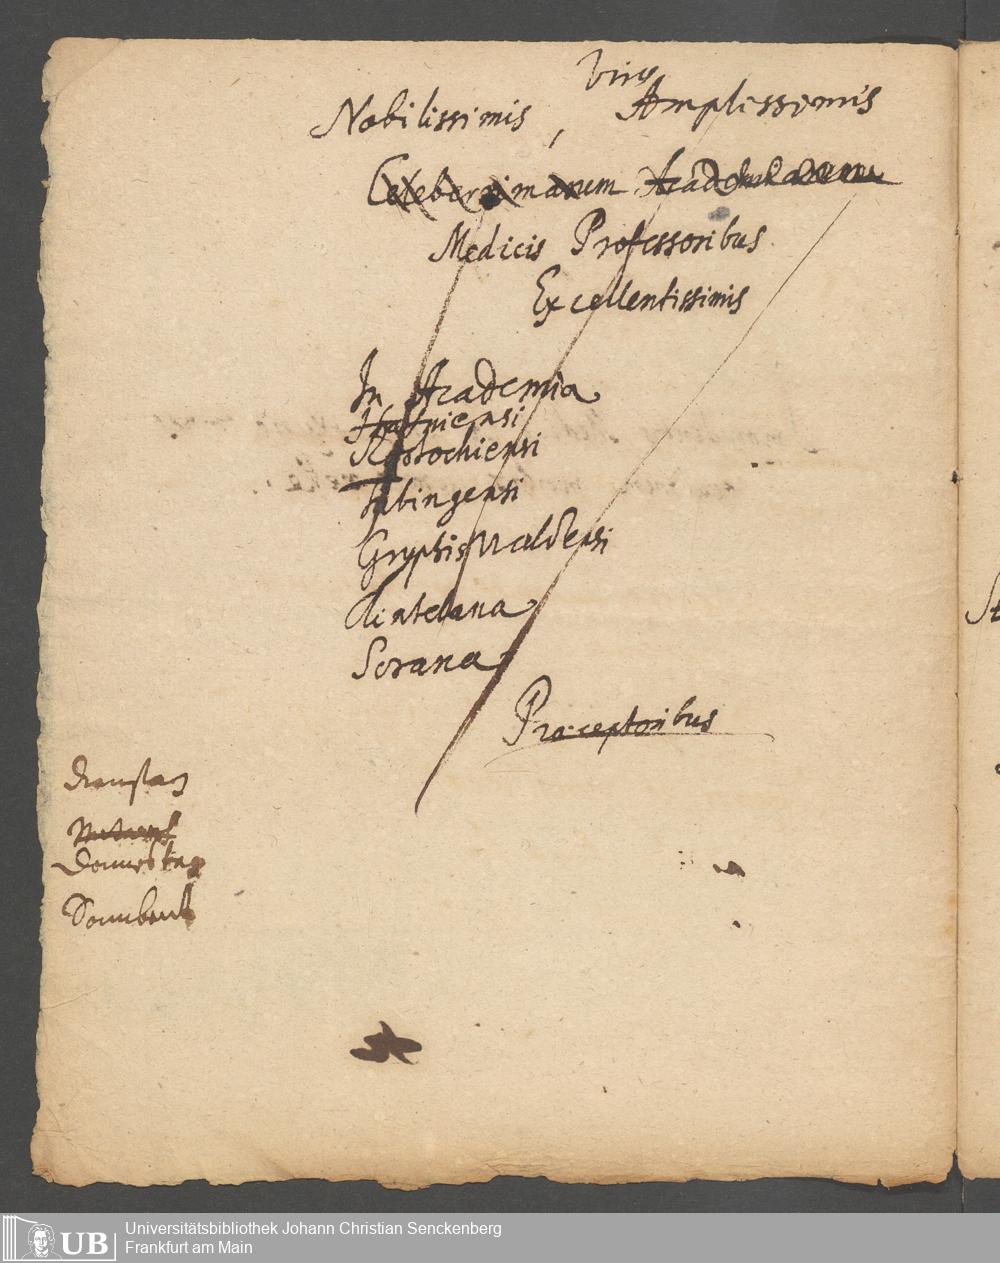 Viris
Nobilissimis, Amplissimis
Celeberrimarum Academiarum
Medicis Professoribus
Excellentissimis
In Academia
Hafniensi
Rostochiensi
Tubingensi
Gryphiswaldensi
Rintelana
Sorana
Præceptoribus
Dienstag
Donnerstag
Sonnbend
UB
Universitätsbibliothek Johann Christian Senckenberg
Frankfurt am Main